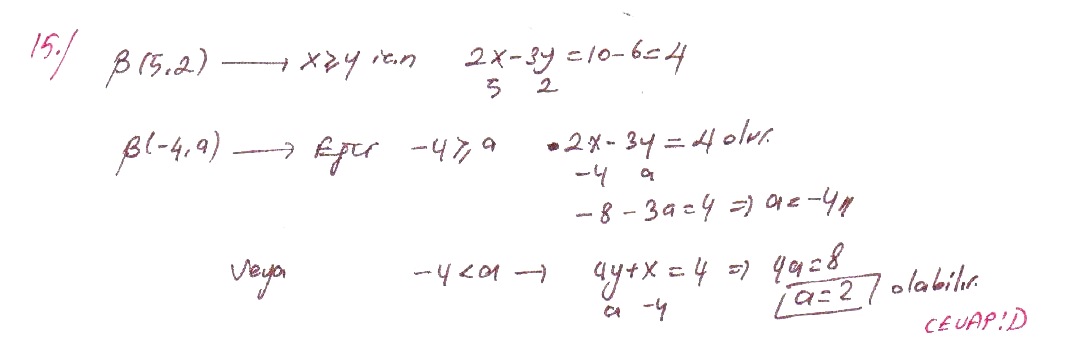 15./ β(5,2) → x≥y için 2x-3y=10-6=4
5 2
β(-4,a) → Eğer -4≥a •2x-3y=4 olur.
-4 a
-8-3a=4 ⇒ a=-4//
Veya -4<a → 4y+x=4 ⇒ 4a=8
a -4 a=2 olabilir.
CEVAP:D